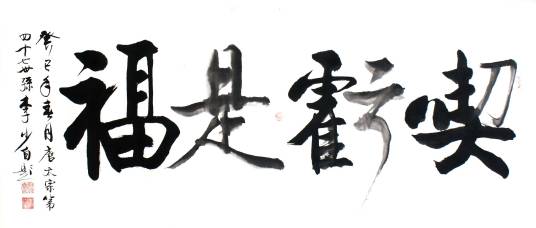 喫虧是福
癸巳年春月唐太宗第
四十七世孫李